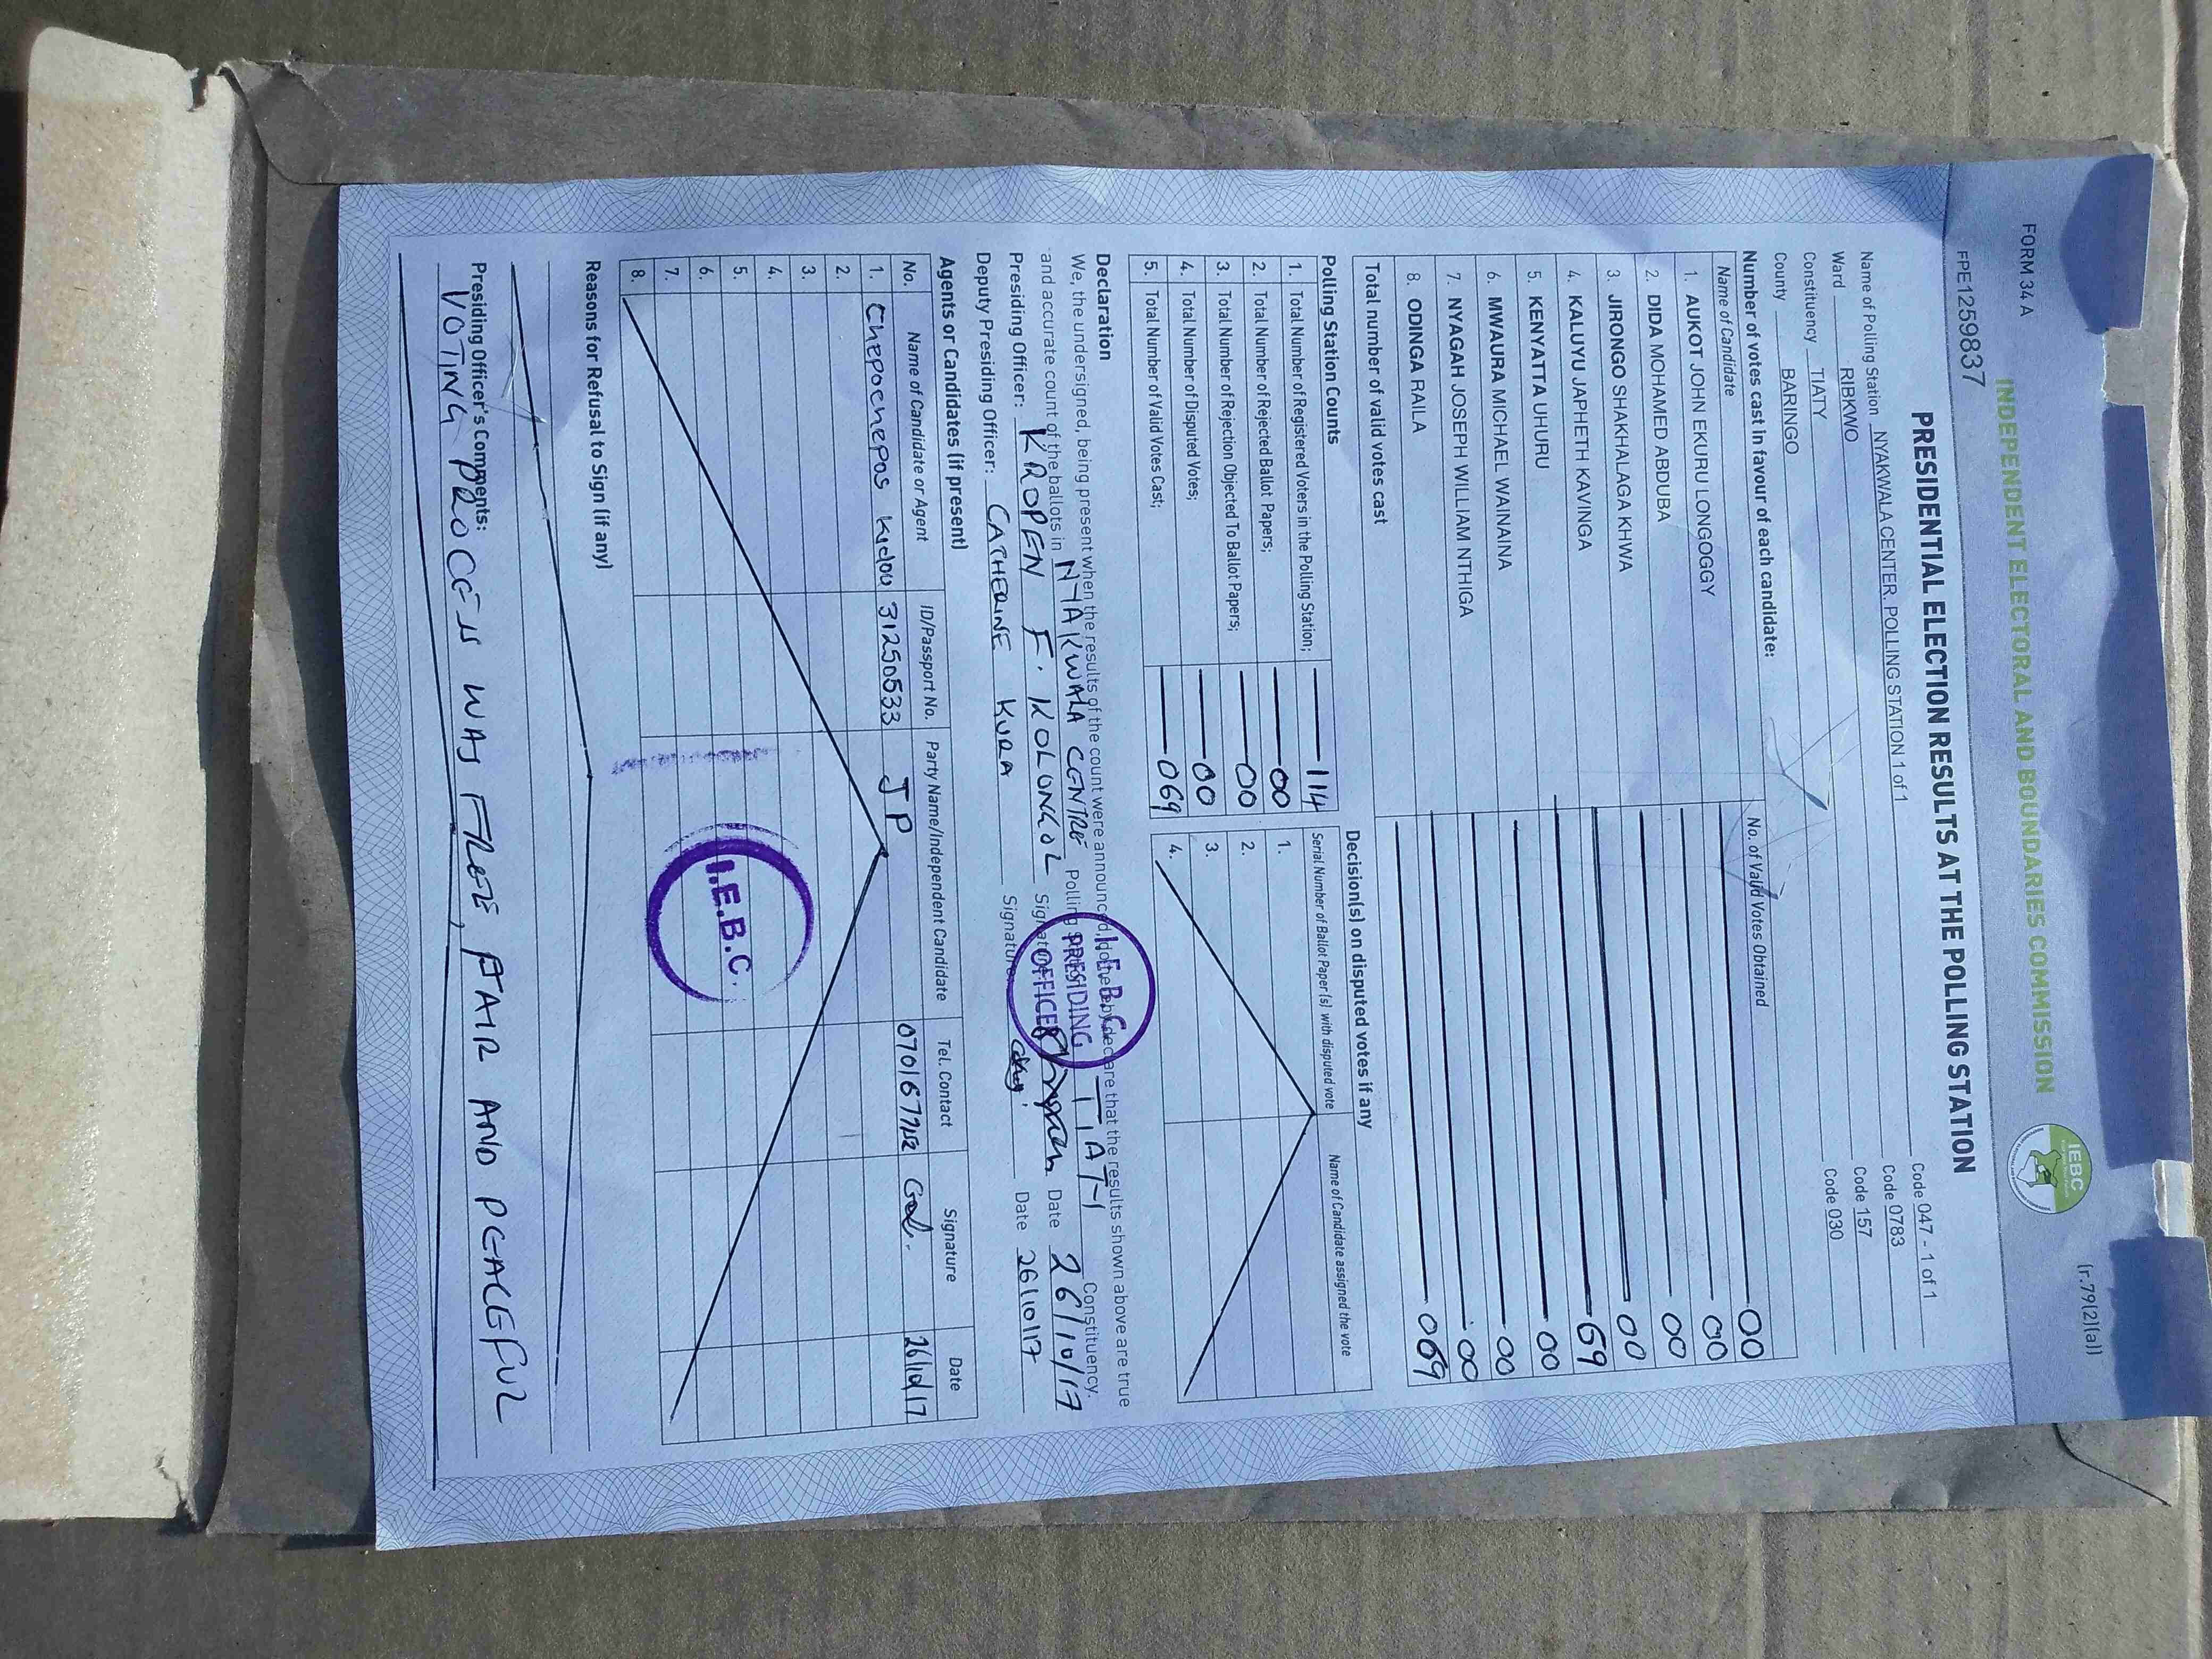 FORM 34 A
(r.79(2)(a))
INDEPENDENT ELECTORAL AND BOUNDARIES COMMISSION
IEBC
FPE1259837
PRESIDENTIAL ELECTION RESULTS AT THE POLLING STATION
Name of Polling Station NYAKWALA CENTER. POLLING STATION 1 of 1 Code 047 - 1 of 1
Ward RIBKWO Code 0783
Constituency TIATY Code 157
County BARINGO Code 030
Number of votes cast in favour of each candidate:
Name of Candidate No. of Valid Votes Obtained
1. AUKOT JOHN EKURU LONGOGGY 00
2. DIDA MOHAMED ABDUBA 00
3. JIRONGO SHAKHALAGA KHWA 00
4. KALUYU JAPHETH KAVINGA 00
5. KENYATTA UHURU 69
6. MWAURA MICHAEL WAINAINA 00
7. NYAGAH JOSEPH WILLIAM NTHIGA 00
8. ODINGA RAILA 00
Total number of valid votes cast 069
Polling Station Counts
1. Total Number of Registered Voters in the Polling Station; 114
2. Total Number of Rejected Ballot Papers; 00
3. Total Number of Rejection Objected To Ballot Papers; 00
4. Total Number of Disputed Votes; 00
5. Total Number of Valid Votes Cast; 069
Decision(s) on disputed votes if any
Serial Number of Ballot Paper (s) with disputed vote Name of Candidate assigned the vote
1.
2.
3.
4.
Declaration
We, the undersigned, being present when the results of the count were announced, do hereby declare that the results shown above are true
and accurate count of the ballots in NYAKWALA CENTRE Polling TIATY Constituency.
Presiding Officer: KROPEN F. KOLONGOL Signature Date 26/10/17
Deputy Presiding Officer: CATHERINE KURA Signature Date 26/10/17
I.E.B.C
PRESIDING
OFFICER
Agents or Candidates (if present)
No. Name of Candidate or Agent ID/Passport No. Party Name/Independent Candidate Tel. Contact Signature Date
1. Chepochepos Kidou 31250533 JP 26/10/17
2.
3.
4.
5.
6.
7.
8.
I.E.B.C.
Reasons for Refusal to Sign (if any)
Presiding Officer's Comments:
VOTING PROCCESS WAS FREE, FAIR AND PEACEFUL